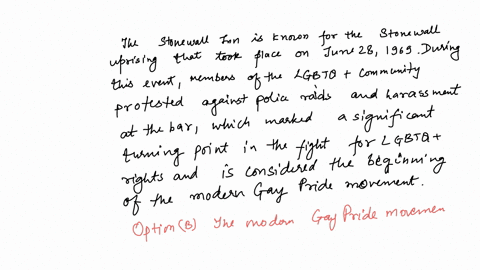 The Stonewall Inn is known for the Stonewall
uprising that took place on June 28, 1969. During
this event, members of the LGBTQ + Community
protested against police raids and harassment
at the bar, which marked a significant
turning point in the fight for LGBTQ+
rights and is considered the beginning
of the modern Gay Pride movement.
Option (B) The modern Gay Pride movemen